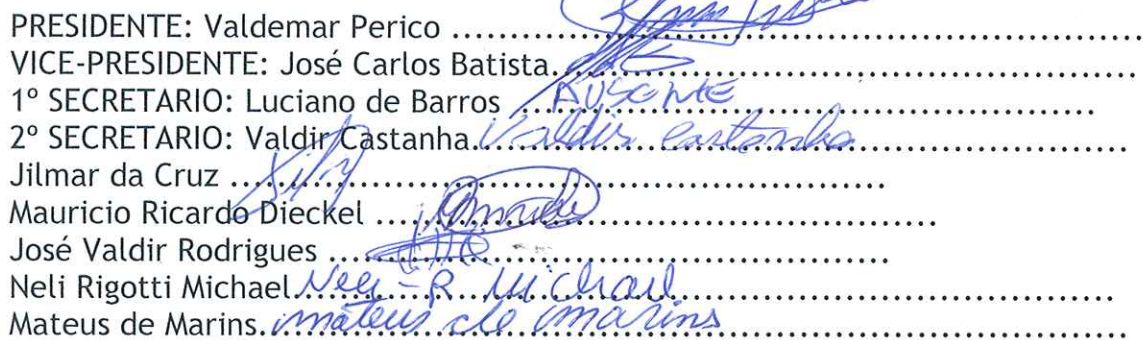 PRESIDENTE: Valdemar Perico ..........................................................................
VICE-PRESIDENTE: José Carlos Batista..............................................................
1º SECRETARIO: Luciano de Barros AUSENTE ..............................................................
2º SECRETARIO: Valdir Castanha. Valdir Castanha ..............................................................
Jilmar da Cruz ....................................................................
Mauricio Ricardo Dieckel .........................................................
José Valdir Rodrigues ............................................................
Neli Rigotti Michael. Neli - R Michael ..............................................................
Mateus de Marins. mateus de marins ..............................................................